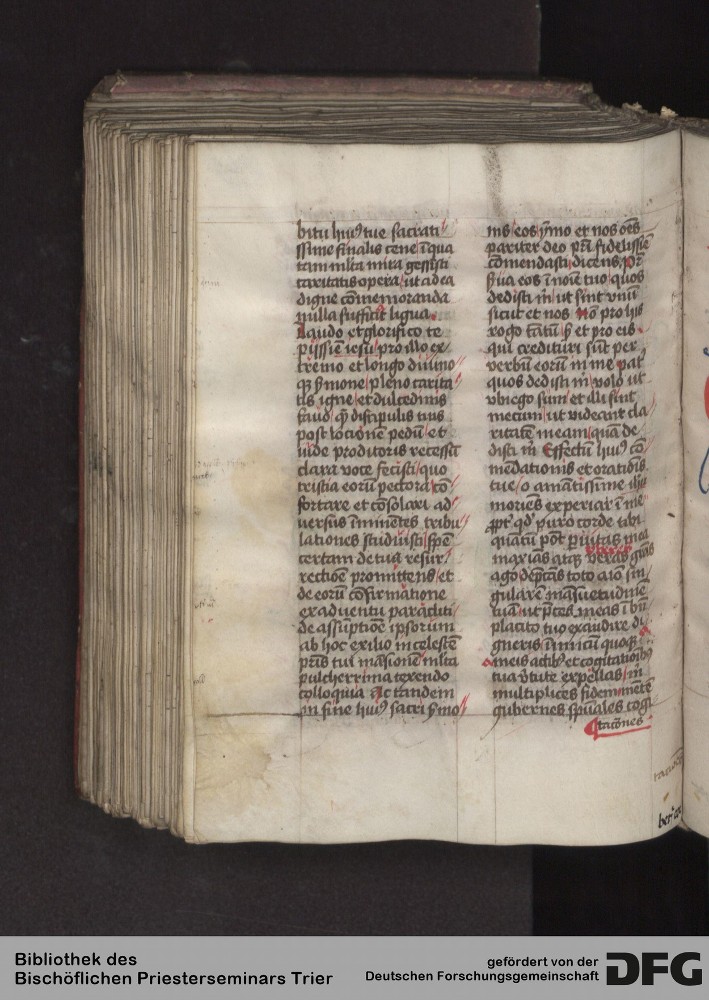 bitu huiꝰ tue sacrati
ssime finalis cene ī qua
tam mlta mira gessisti
caritatis opera ut ad ea
digne cōmemoranda
nulla sufficit ligua.
Laudo et glorifico te
pijssiē iesu pro illo ex
tremo et longo diuino
qꝫ ẜmone pleno carita
tis igne et dulcedinis
fauo quē discipulis tuis
post locionē pedū et
uale proditoris recessū
clara voce fecisti quo
tristia eorū pectora cō
fortare et cōsolari ad
uersus īminētes tribu
lationes studuisti spē
certam de tua resur
rectiōe promittens et
de eorū cōfirmatione
ex aduentu paracliti
de assūptiōe ipsorum
ab hoc exilio in celestē
pr̄is tui māsionē mlta
pulcherrima texendo
colloquia Ac tandem
in fine huiꝰ sacri ẜmo
nis eos ȳmo et nos oēs
pariter deo pr̄i fidelissiē
cōmendasti dicens, pr̄
ẜua eos ī noīe tuo quos
dedisti m̄ ut sint vnū
sicut et nos Nō pro hijs
rogo tātū ẜ et pro eis
qui credituri sūt per
verbū eorū in me pat̄
quos dedisti m̄ volo ut
vbi ego sum et illi sint
mecum ut videant cla
ritatē meam quā de
disti m̄ Effectū huiꝰ cō
mēdationis et oratiōis
tue o amātissime ihū
moriēs experiar ī me
ꝓpt̄ qd̓ puro corde tibi
quātū pōt ꝑuitas mea
maxīas atqꝫ veras grās
ago deꝑcās toto aīo sin
gularē māsuetudinē
tuā ut p̄ces meas ī bn̄
placito tuo exaudire di
gneris īimicū quoqꝫ a
meis actibꝰ et cogitatiōibꝰ
tua v̓tute expellas m̄
multiplices fidem
gubernes sp̄uales cogi
tacōnes
Bibliothek des
Bischöflichen Priesterseminars Trier
gefördert von der
Deutschen Forschungsgemeinschaft
DFG